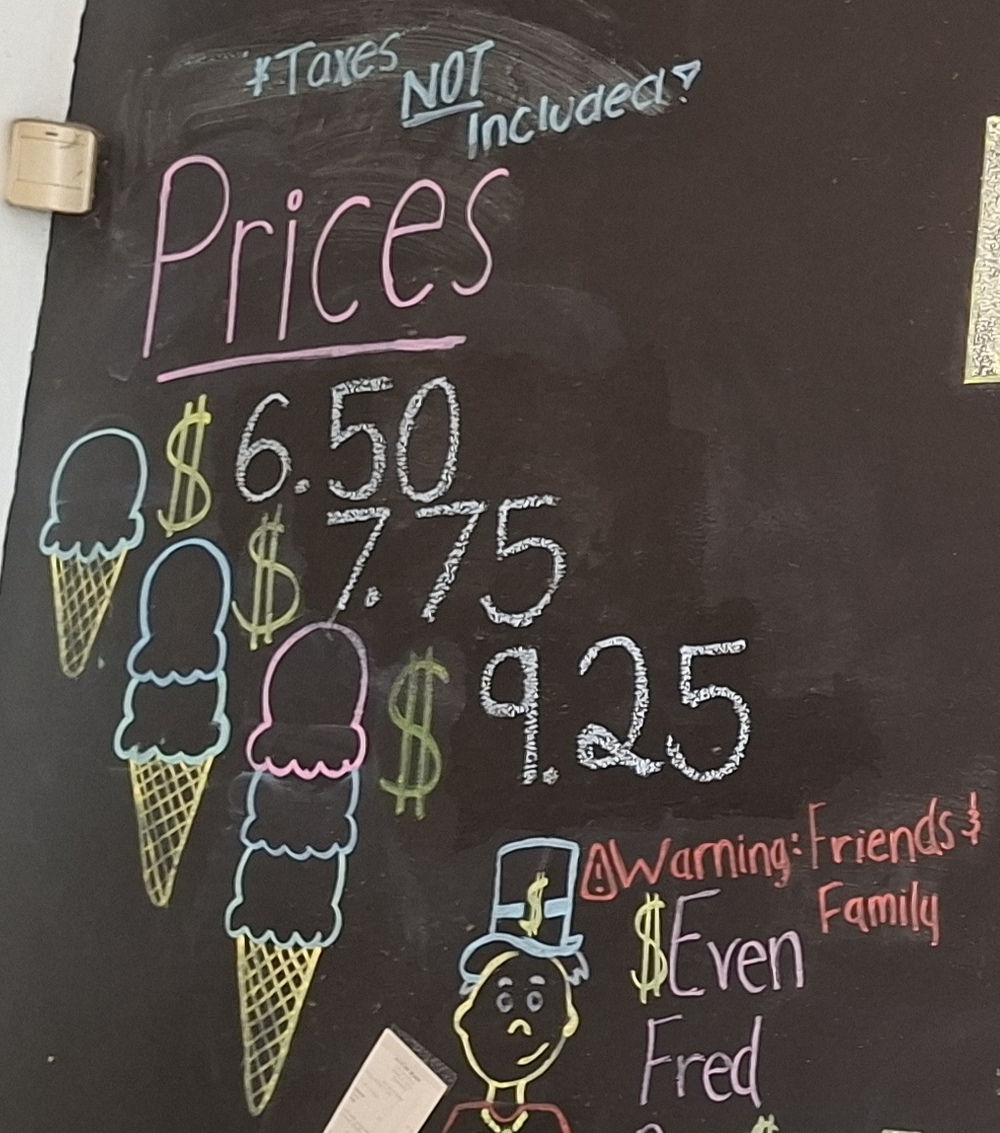 *Taxes NOT Included!
Prices
$ 6.50
$ 7.75
$ 9.25
$
Warning: Friends &
Family
$Even
Fred